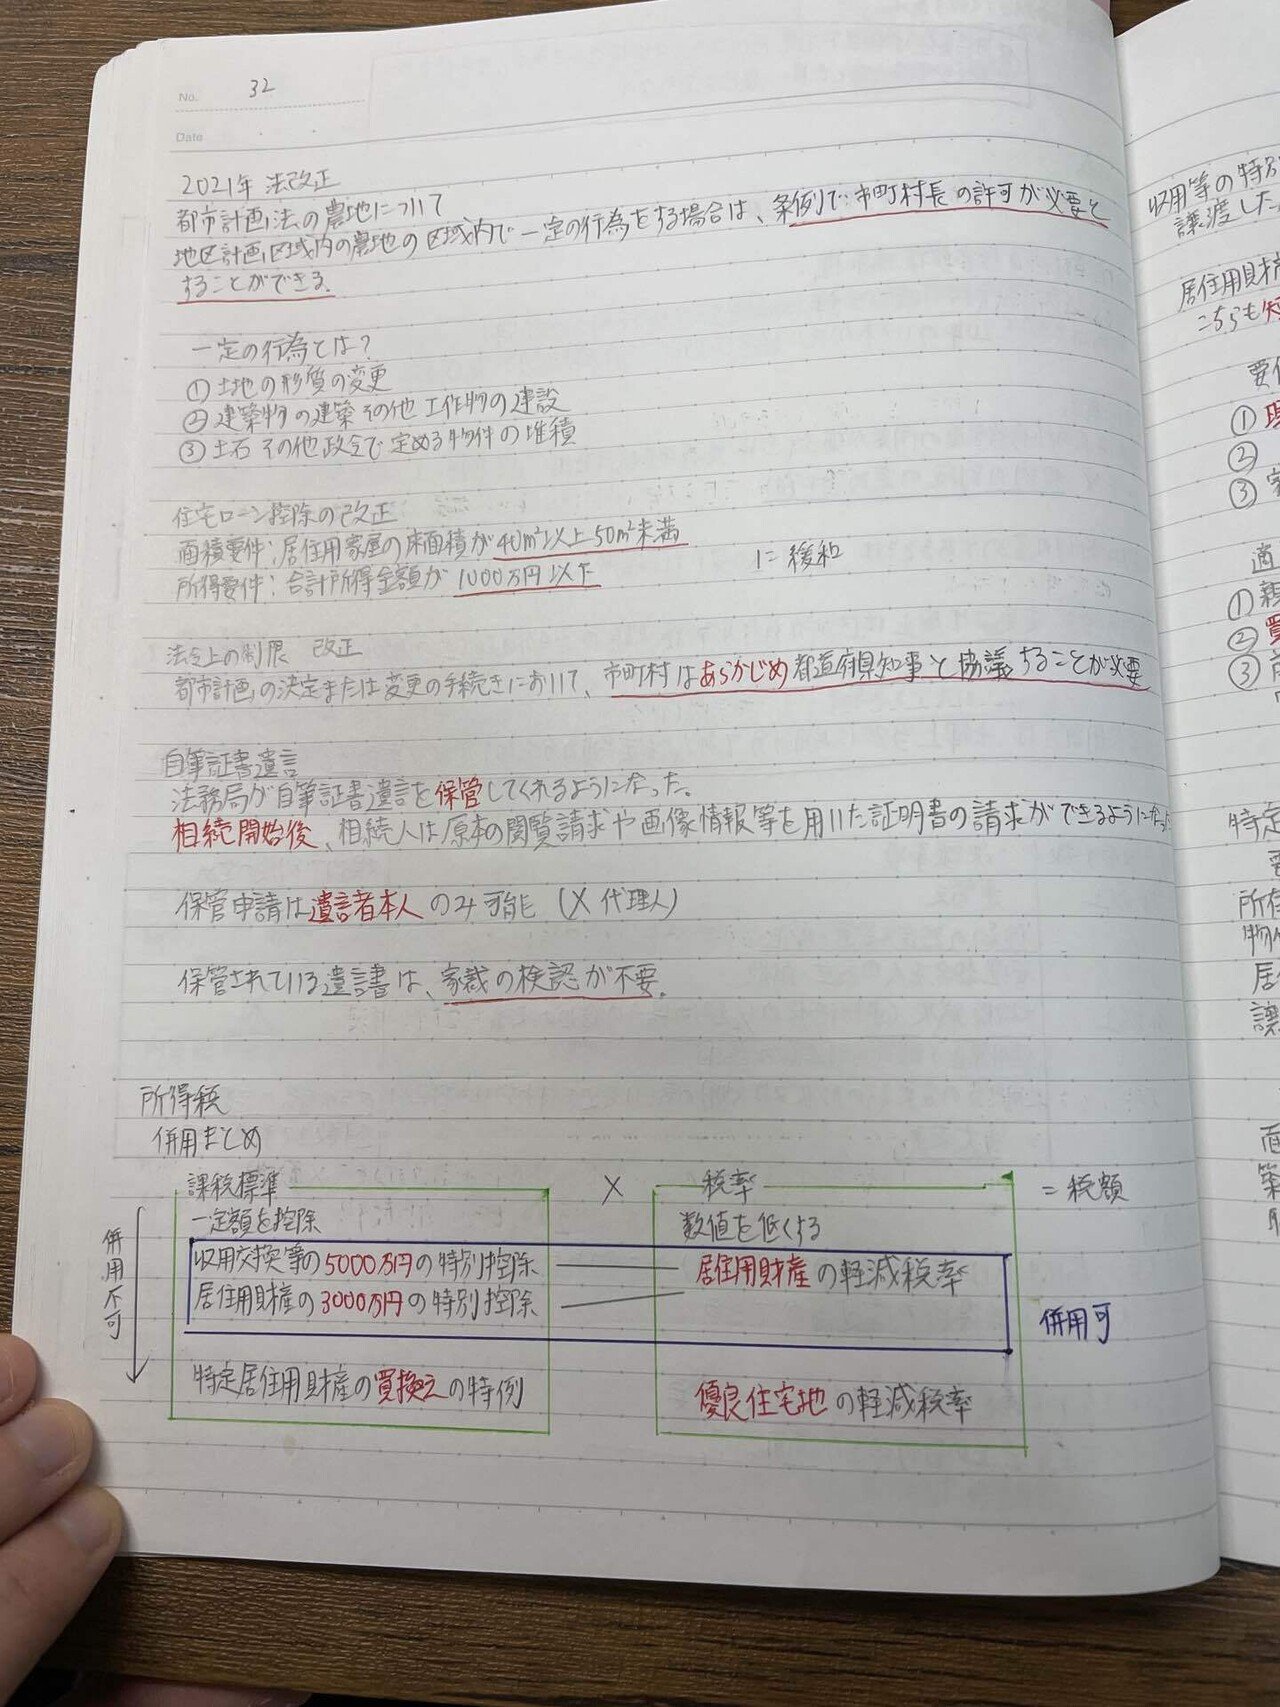 No. 32
Date
2021年 法改正
都市計画法の農地について
地区計画区域内の農地の区域内で一定の行為をする場合は、条例で市町村長の許可が必要と
することができる.
一定の行為とは?
① 土地の形質の変更
② 建築物の建築その他工作物の建設
③ 土石その他政令で定める物件の堆積
住宅ローン控除の改正
面積要件:居住用家屋の床面積が40㎡以上50㎡未満
に緩和
所得要件:合計所得金額が1000万円以下
法令上の制限 改正
都市計画の決定または変更の手続きにおいて、市町村はあらかじめ都道府県知事と協議することが必要
自筆証書遺言
法務局が自筆証書遺言を保管してくれるようになった。
相続開始後、相続人は原本の閲覧請求や画像情報等を用いた証明書の請求ができるようになった
保管申請は遺言者本人のみ可能 (X 代理人)
保管されている遺言書は、家裁の検認が不要.
所得税
併用まとめ
課税標準 × 税率 = 税額
一定額を控除 数値を低くする
収用交換等の5000万円の特別控除 居住用財産の軽減税率
居住用財産の3000万円の特別控除
併用不可
併用可
特定居住用財産の買換えの特例 優良住宅地の軽減税率
収用等の特別
譲渡した
居住用財産
こちらも
①
②
③
①
②
③
特定
所在